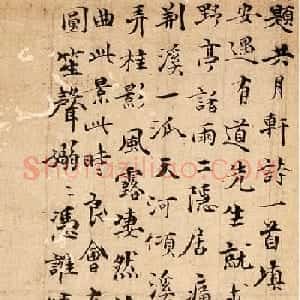 題共月軒詩一首填
安遇有道先生就
野亭話雨二隱居
荆溪一派天河傾溪
弄桂影風露凄然
曲此景此時良會
圖笙聲憑誰